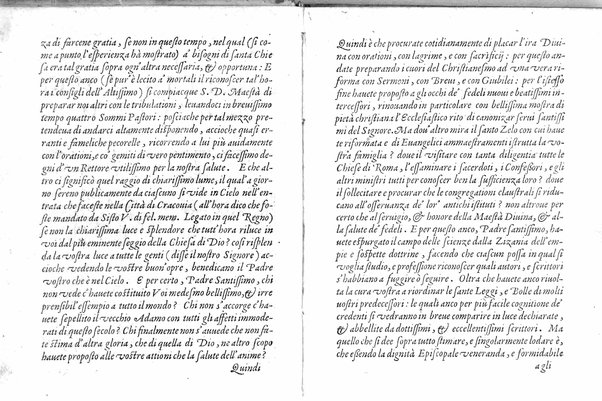 za di farcene gratia, se non in questo tempo, nel qual (si co-
me a punto l'esperienza hà mostrato) a' bisogni di santa Chie
sa era tal gratia sopra ogni altra necessaria, & opportuna: E
per questo anco (se pur' è lecito a' mortali il riconoscer tal'ho
ra i consigli dell'Altissimo) si compiacque S. D. Maestà di
preparar noi altri con le tribulationi, leuandoci in breuissimo
tempo quattro Sommi Pastori: posciache per tal mezzo pre-
tendeua di andarci altamente disponendo, accioche quasi er-
ranti e fameliche pecorelle, ricorrendo a lui più auidamente
con l'orationi, e co' gemiti di vero pentimento, ci facessimo de-
gni d'un Rettore vtilissimo per la nostra salute. E che al-
tro ci significò quel raggio di chiarissimo lume, il qual a gior-
no sereno publicamente da ciascuno si vide in Cielo nell'en-
trata che faceste nella Città di Cracouia (all'hora dico che fo-
ste mandato da Sisto V. di fel. mem. Legato in quel Regno)
se non la chiarissima luce e splendore che tutt'hora riluce in
voi dal più eminente seggio della Chiesa di Dio? così risplen
da la vostra luce a tutte le genti (disse il nostro Signore) ac-
cioche vedendo le vostre buon'opre, benedicano il Padre
vostro che è nel Cielo. E per certo, Padre Santissimo, chi
non vede c'hauete costituito Voi medesmo bellissimo, & irre
prensibil'esempio a tutto il mondo? Chi non s'accorge c'ha-
uete sepellito il vecchio Adamo con tutti gli affetti immode-
rati di questo secolo? Chi finalmente non s'auuede che non fa-
te stima d'altra gloria, che di quella di Dio, ne altro scopo
hauete proposto alle vostre attioni che la salute dell'anime?
Quindi
Quindi è che procurate cotidianamente di placar l'ira Diui
na con orationi, con lagrime, e con sacrificij: per questo an-
date preparando i cuori del Christianesmo ad vna vera ri-
forma con Sermoni, con Breui, e con Giubilei: per l'istesso
fine hauete proposto a gli occhi de' fedeli nuoui e beatissimi in
tercessori, rinouando in particolare con bellissima mostra di
pietà christiana l'Ecclesiastico rito di canonizar serui santissi
mi del Signore. Ma dou'altro mira il santo Zelo con cui haue
te riformata e di Euangelici ammaestramenti istrutta la vo-
stra famiglia? doue il visitare con tanta diligentia tutte le
Chiese di Roma, l'essaminar i sacerdoti, i Confessori, e gli
altri ministri tutti per conoscer ben la sufficienza loro? doue
il sollecitare e procurar che le congregationi claustrali si ridu-
cano all'osseruanza de' lor' antichi istituti? non altroue per
certo che al seruigio, & honore della Maestà Diuina, & al-
la salute de' fedeli. E per questo, Padre santissimo, ha-
uete espurgato il campo delle scienze dalla Zizania dell'em-
pie e sospette dottrine, facendo che ciascun possa in qual si
voglia studio, e professione riconoscer quali autori, e scrittori
s'habbiano a fuggire ò seguire. Oltra che hauete anco riuol-
ta la cura vostra a riordinar le sante Leggi, e Bolle di molti
vostri predecessori: le quali anco per più facile cognitione de'
credenti si vedranno in breue comparire in luce dechiarate,
& abbellite da dottissimi, & eccellentissimi scrittori. Ma
quello che si dee sopra tutto stimare, e singolarmente lodare è,
che essendo la dignità Episcopale veneranda, e formidabile
a gli